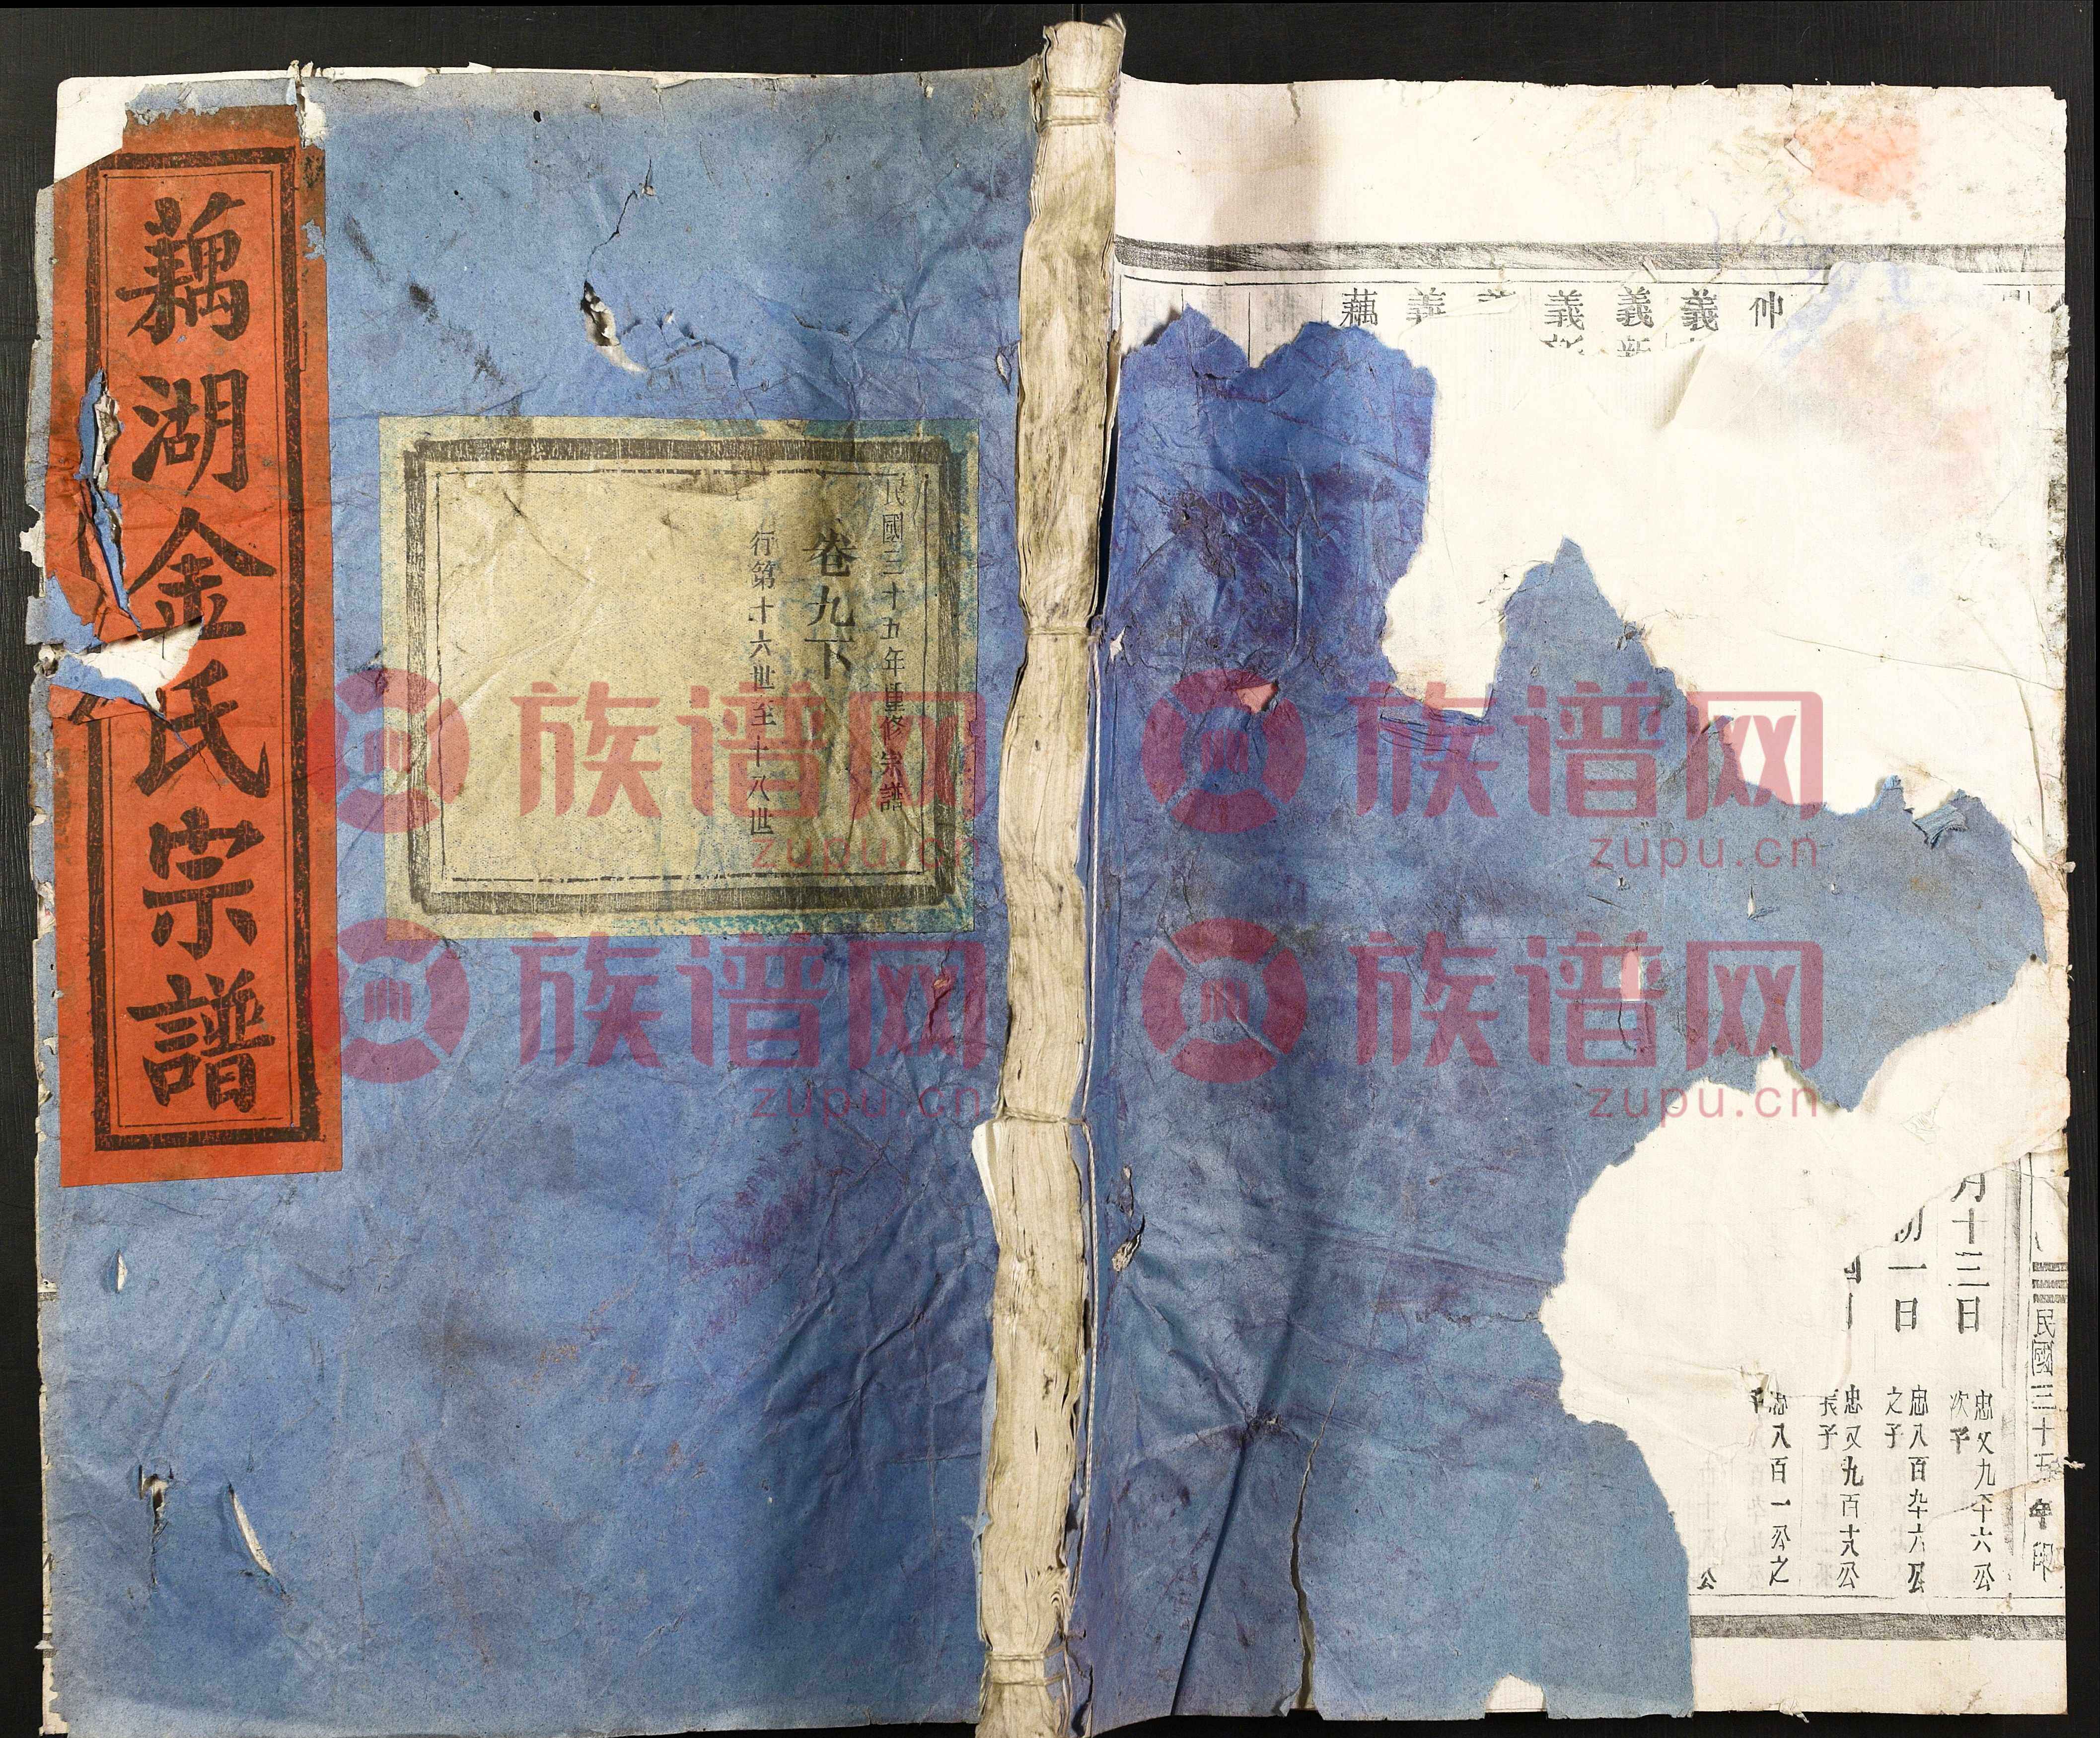 藕湖金氏宗譜
民國三十五年重修宗譜
卷九下
行第十六世至十八世
民國三十五年印
月十三日
忠文九千六公
次子
初一日
忠八百九十六公
之子
忠又九百十八公
長子
忠八百一公之
子
公
仲
義
義
義
義
藕
族谱网
zupu.cn
族谱网
zupu.cn
族谱网
zupu.cn
族谱网
zupu.cn